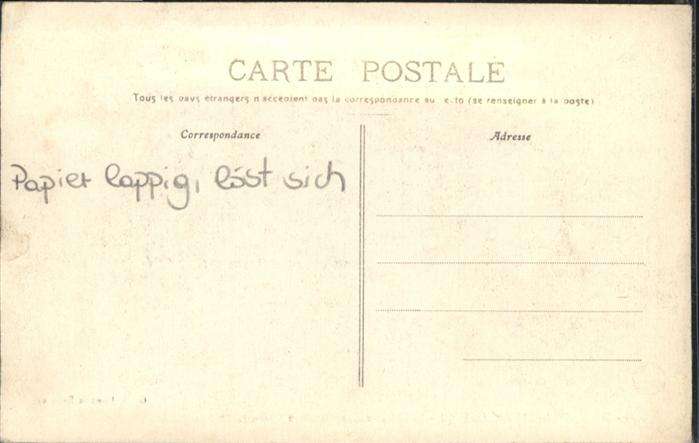 CARTE POSTALE
Tous les pays étrangers n'acceptent pas la correspondance au (se renseigner à la poste)
Correspondance
Adresse
Papier lappig, löst sich